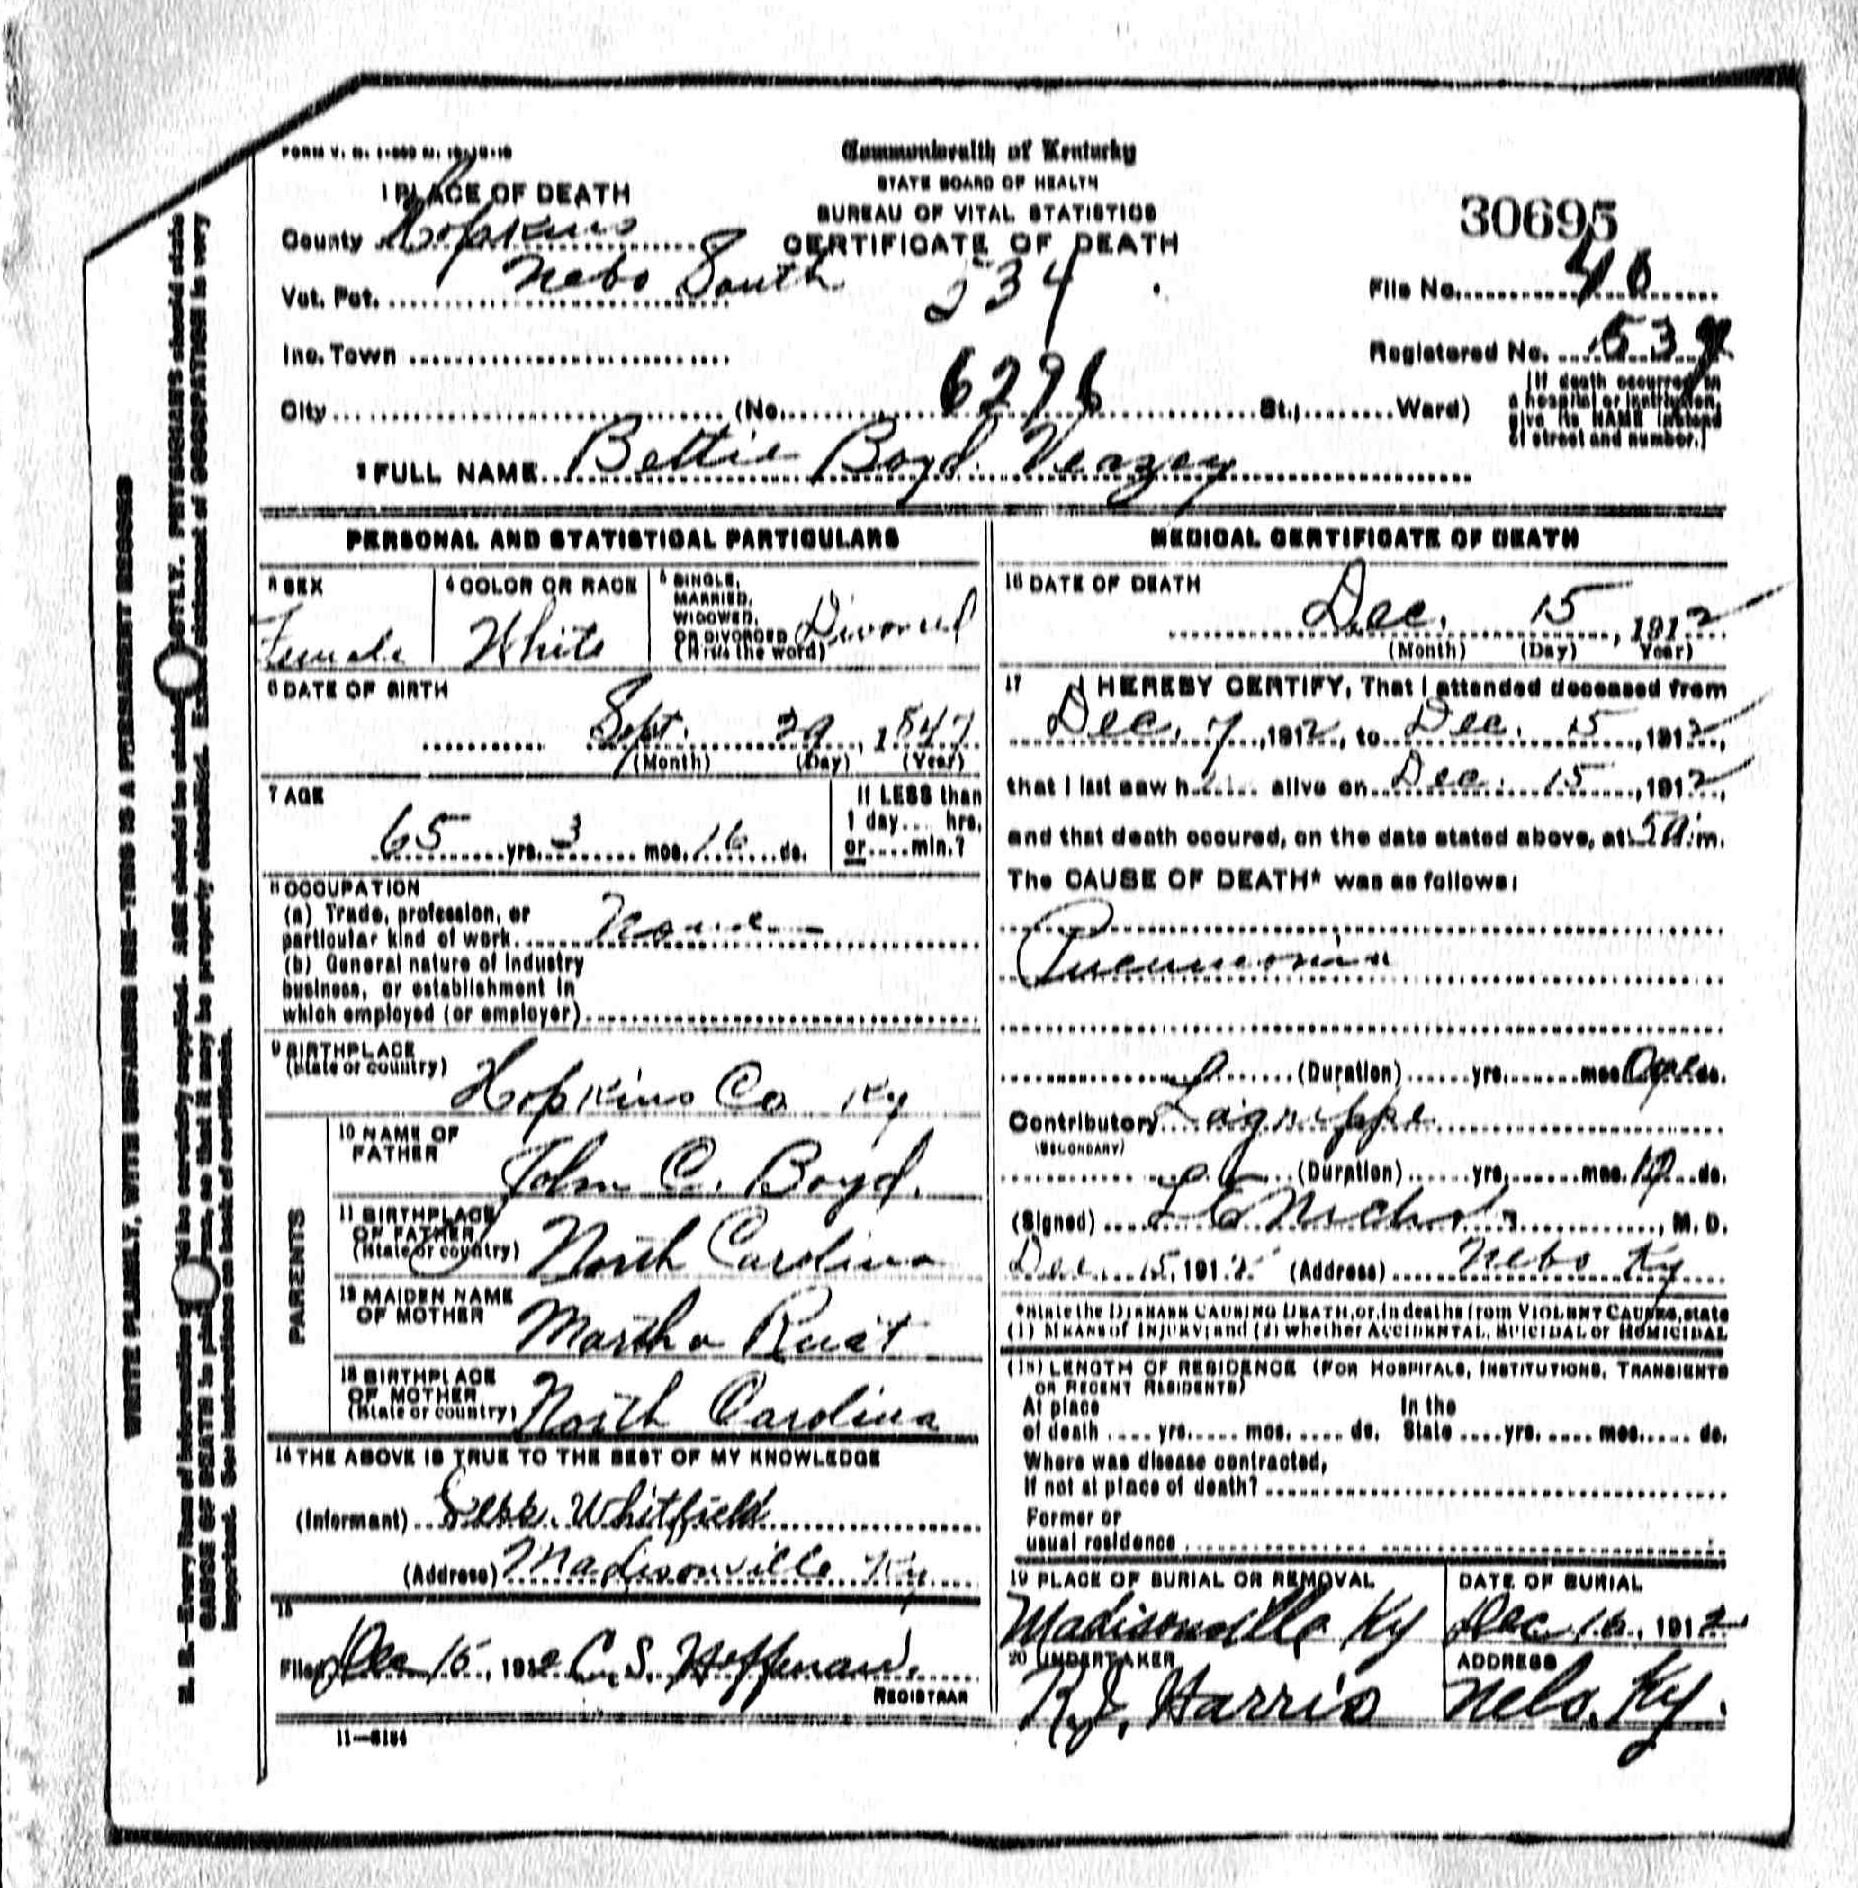 Commonwealth of Kentucky
STATE BOARD OF HEALTH
BUREAU OF VITAL STATISTICS
CERTIFICATE OF DEATH
1 PLACE OF DEATH
County Hopkins
Vot. Pct. Nebo South
534
Inc. Town
City (No. 6296 St., Ward)
30695
File No. 46
Registered No. 534
(If death occurred in
a hospital or institution,
give its NAME instead
of street and number.)
2 FULL NAME Bettie Boyd Veazey
PERSONAL AND STATISTICAL PARTICULARS
3 SEX
Female
4 COLOR OR RACE
White
5 SINGLE,
MARRIED,
WIDOWED,
OR DIVORCED
(Write the word) Divorced
6 DATE OF BIRTH
Sept. 29, 1847
(Month) (Day) (Year)
7 AGE
65 yrs. 3 mos. 16 ds.
If LESS than
1 day.... hrs.
or.... min.?
8 OCCUPATION
(a) Trade, profession, or
particular kind of work None
(b) General nature of industry
business, or establishment in
which employed (or employer)
9 BIRTHPLACE
(State or country)
Hopkins Co Ky
PARENTS
10 NAME OF
FATHER
John C. Boyd.
11 BIRTHPLACE
OF FATHER
(State or country) North Carolina
12 MAIDEN NAME
OF MOTHER
Martha
13 BIRTHPLACE
OF MOTHER
(State or country) North Carolina
14 THE ABOVE IS TRUE TO THE BEST OF MY KNOWLEDGE
(Informant) Whitfield
(Address) Madisonville Ky
15
Filed Dec 15, 1912 C. S. Hoffman.
REGISTRAR
11—5184
MEDICAL CERTIFICATE OF DEATH
16 DATE OF DEATH
Dec. 15, 1912
(Month) (Day) Year)
17 I HEREBY CERTIFY, That I attended deceased from
Dec. 7, 1912, to Dec. 15, 1912,
that I last saw h alive on Dec. 15, 1912,
and that death occured, on the date stated above, at 5 a.m.
The CAUSE OF DEATH* was as follows:
Pneumonia
(Duration) yrs. mos. ds.
Contributory Lagrippe
(SECONDARY)
(Duration) yrs. mos. ds.
(Signed) Nichols, M. D.
Dec 15, 1912 (Address) Nebo Ky
*State the DISEASE CAUSING DEATH, or, in deaths from VIOLENT CAUSES, state
(1) MEANS of INJURY; and (2) whether ACCIDENTAL, SUICIDAL or HOMICIDAL
(18) LENGTH OF RESIDENCE (FOR HOSPITALS, INSTITUTIONS, TRANSIENTS
OR RECENT RESIDENTS)
At place In the
of death .... yrs. .... mos. .... ds. State .... yrs. .... mos. .... ds.
Where was disease contracted,
If not at place of death?
Former or
usual residence
19 PLACE OF BURIAL OR REMOVAL
Madisonville Ky
DATE OF BURIAL
Dec 16, 1912
20 UNDERTAKER
R. J. Harris
ADDRESS
Nebo, Ky.
WRITE PLAINLY, WITH UNFADING INK—THIS IS A PERMANENT RECORD
N. B.—Every item of information should be carefully supplied. AGE should be stated EXACTLY. PHYSICIANS should state
CAUSE OF DEATH in plain terms, so that it may be properly classified. Exact statement of OCCUPATION is very
important. See instructions on back of certificate.